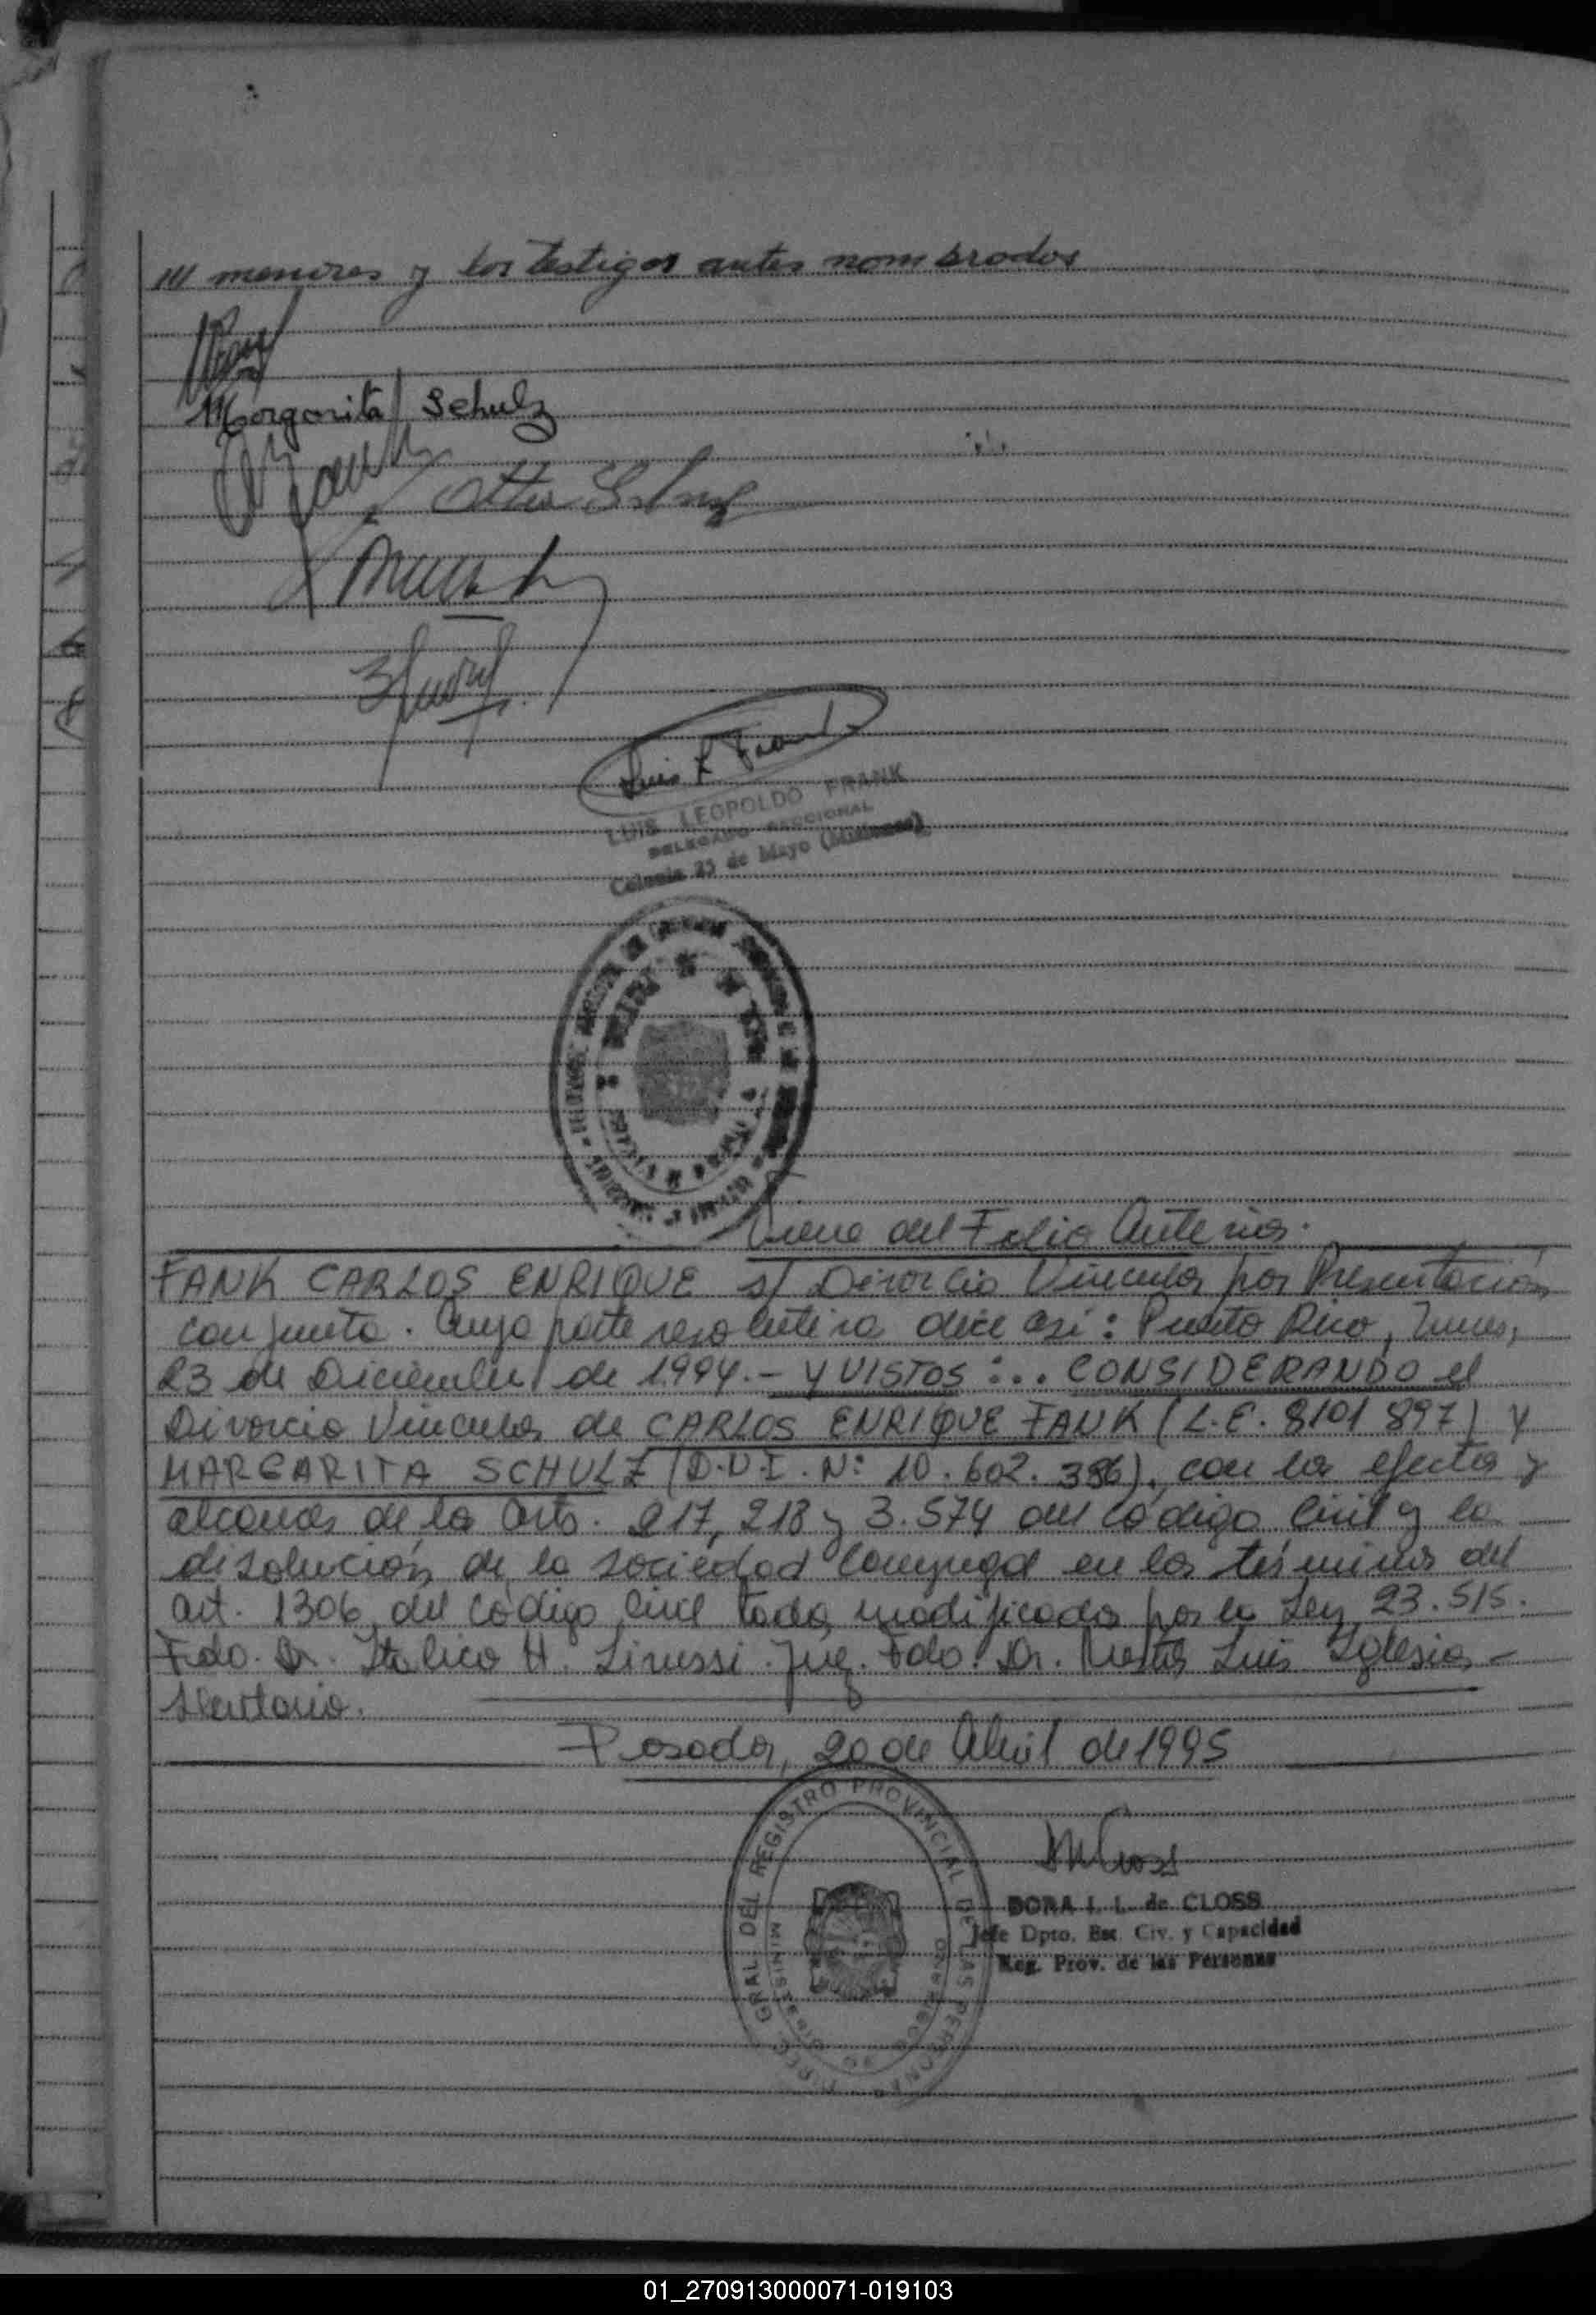 /// menores y los testigos antes nombrados
Margarita Schulz
Otto Schulz
Luis L Frank
LUIS LEOPOLDO FRANK
DELEGADO SECCIONAL
Colonia 25 de Mayo (Misiones)
Viene del Folio Anterior.
FANK CARLOS ENRIQUE s/ Divorcio Vincular por Presentación
conjunta. Cuya parte resolutiva dice así: Puerto Rico, Mnes,
23 de Diciembre de 1994.- Y VISTOS:... CONSIDERANDO el
Divorcio Vincular de CARLOS ENRIQUE FANK (L.E. 8101 897) Y
MARGARITA SCHULZ (D.N.I. N: 10.602.386), con los efectos y
alcances de los Arts. 217, 218 y 3.574 del Código Civil y la
disolución de la sociedad conyugal en los términos del
art. 1306 del Código Civil todos modificados por la Ley 23.515.
Fdo. Dr. Italico H. Linussi. Juez. Fdo. Dr. Luis Iglesias -
Secretario.
Posadas, 20 de Abril de 1995
DIREC. GRAL DEL REGISTRO PROVINCIAL DE LAS PERSONAS
DORA I. L. de CLOSS
Jefe Dpto. Est. Civ. y Capacidad
Reg. Prov. de las Personas
01_270913000071-019103